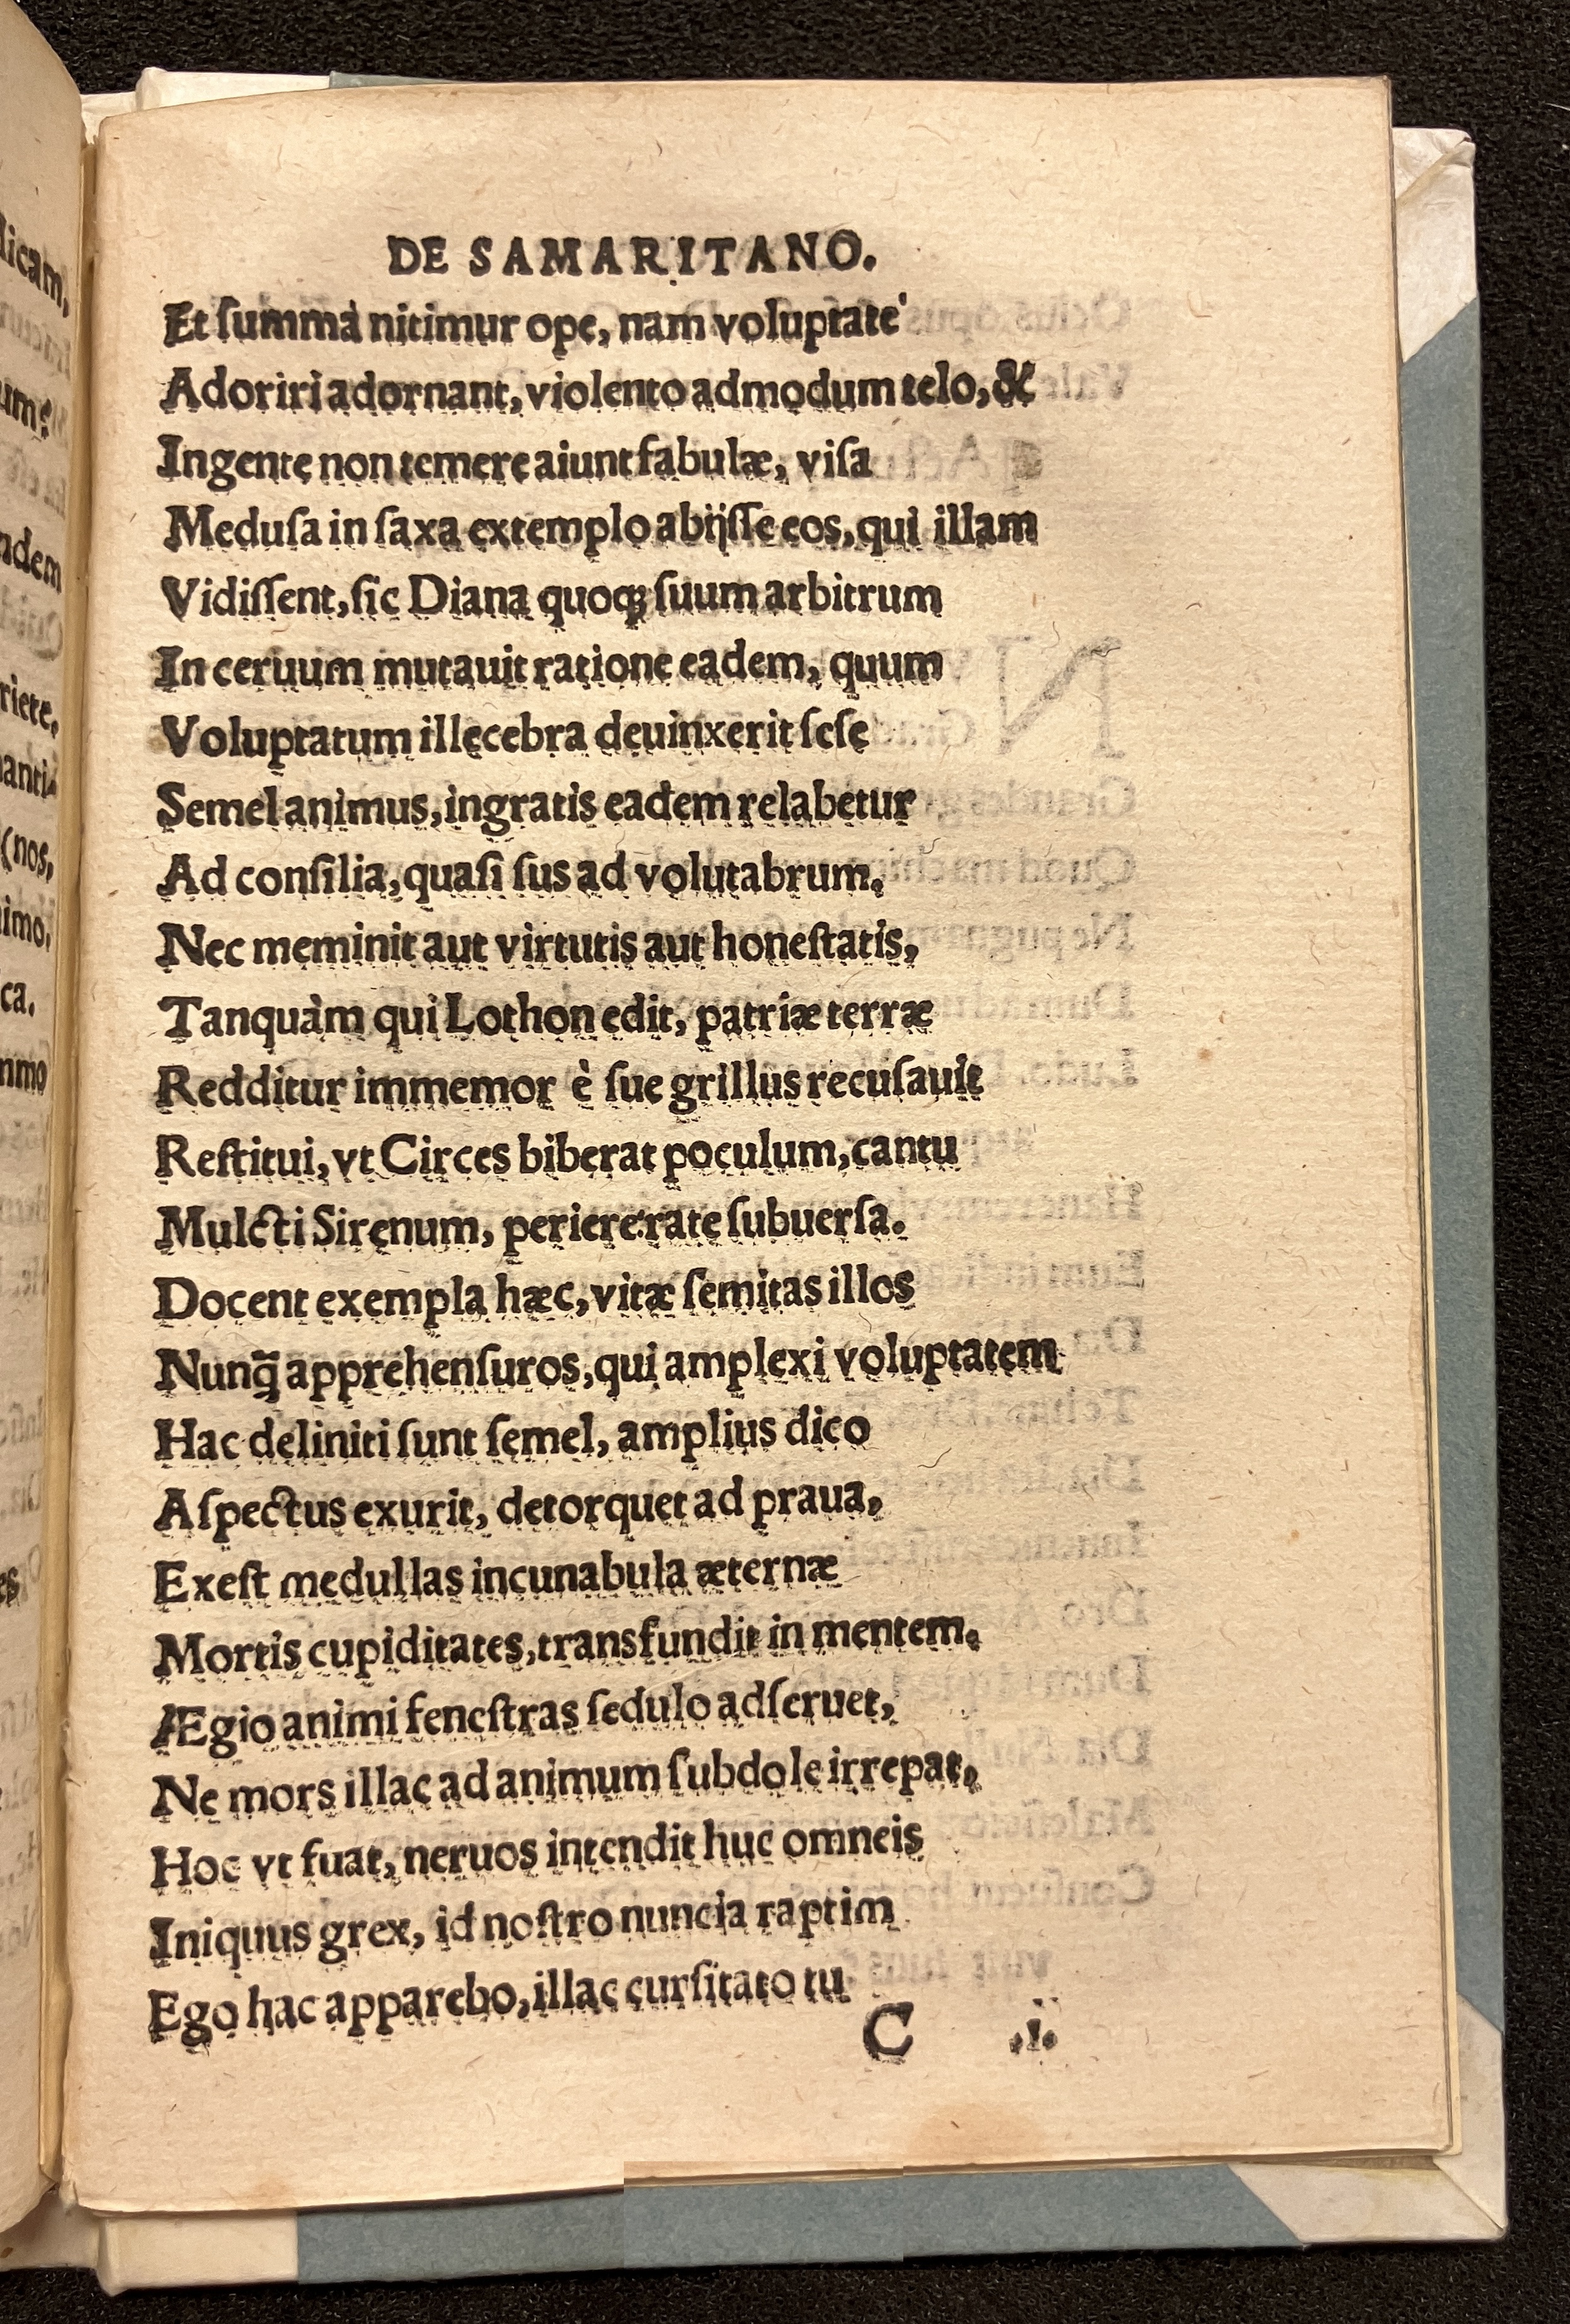 DE SAMARITANO.
Et ſumma nitimur ope, nam voluptate
Adoriri adornant, violento admodum telo, &
Ingente non temere aiunt fabulæ, viſa
Meduſa in ſaxa extemplo abijſſe eos, qui illam
Vidiſſent, ſic Diana quoqꝫ ſuum arbitrum
In ceruum mutauit ratione eadem, quum
Voluptatum illecebra deuinxerit ſeſe
Semel animus, ingratis eadem relabetur
Ad conſilia, quaſi ſus ad volutabrum.
Nec meminit aut virtutis aut honeſtatis,
Tanquàm qui Lothon edit, patriæ terræ
Redditur immemor è ſue grillus recuſauit
Reſtitui, vt Circes biberat poculum, cantu
Mulcti Sirenum, periere rate ſubuerſa.
Docent exempla hæc, vitæ ſemitas illos
Nunq̃ apprehenſuros, qui amplexi voluptatem
Hac deliniti ſunt ſemel, amplius dico
Aſpectus exurit, detorquet ad praua,
Exeſt medullas incunabula æternæ
Mortis cupiditates, transfundit in mentem.
Ægio animi feneſtras ſedulo adſeruet,
Ne mors illac ad animum ſubdole irrepat,
Hoc vt fuat, neruos intendit huc omneis
Iniquus grex, id noſtro nuncia raptim
Ego hac apparebo, illac curſitato tu
C .i.